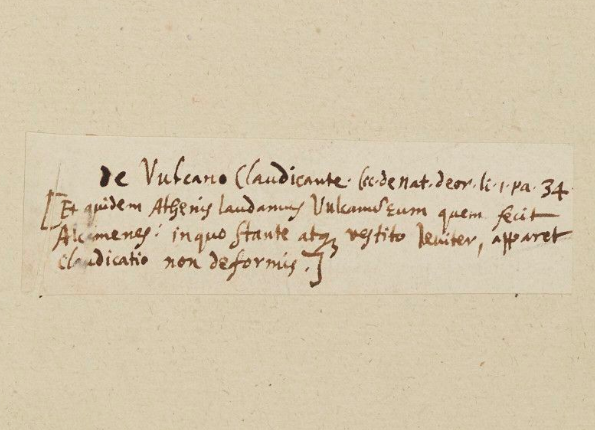 de Vulcano Claudicante. Cic. de nat. deor. li. 1. pa. 34.
[Et quidem Athenis laudamus Vulcanum Eum quem fecit
Alcamenes: in quo stante atq; vestito leviter, apparet
Claudicatio non deformis.]